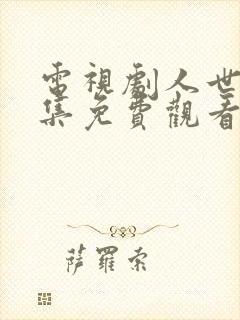 電視劇人世
集免費觀看
薩羅索